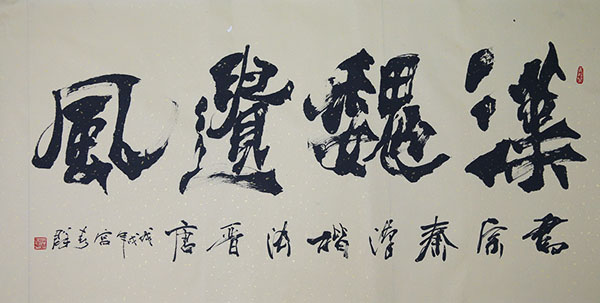 漢魏遺風
書宗秦漢楷法晋唐戊戌年宮